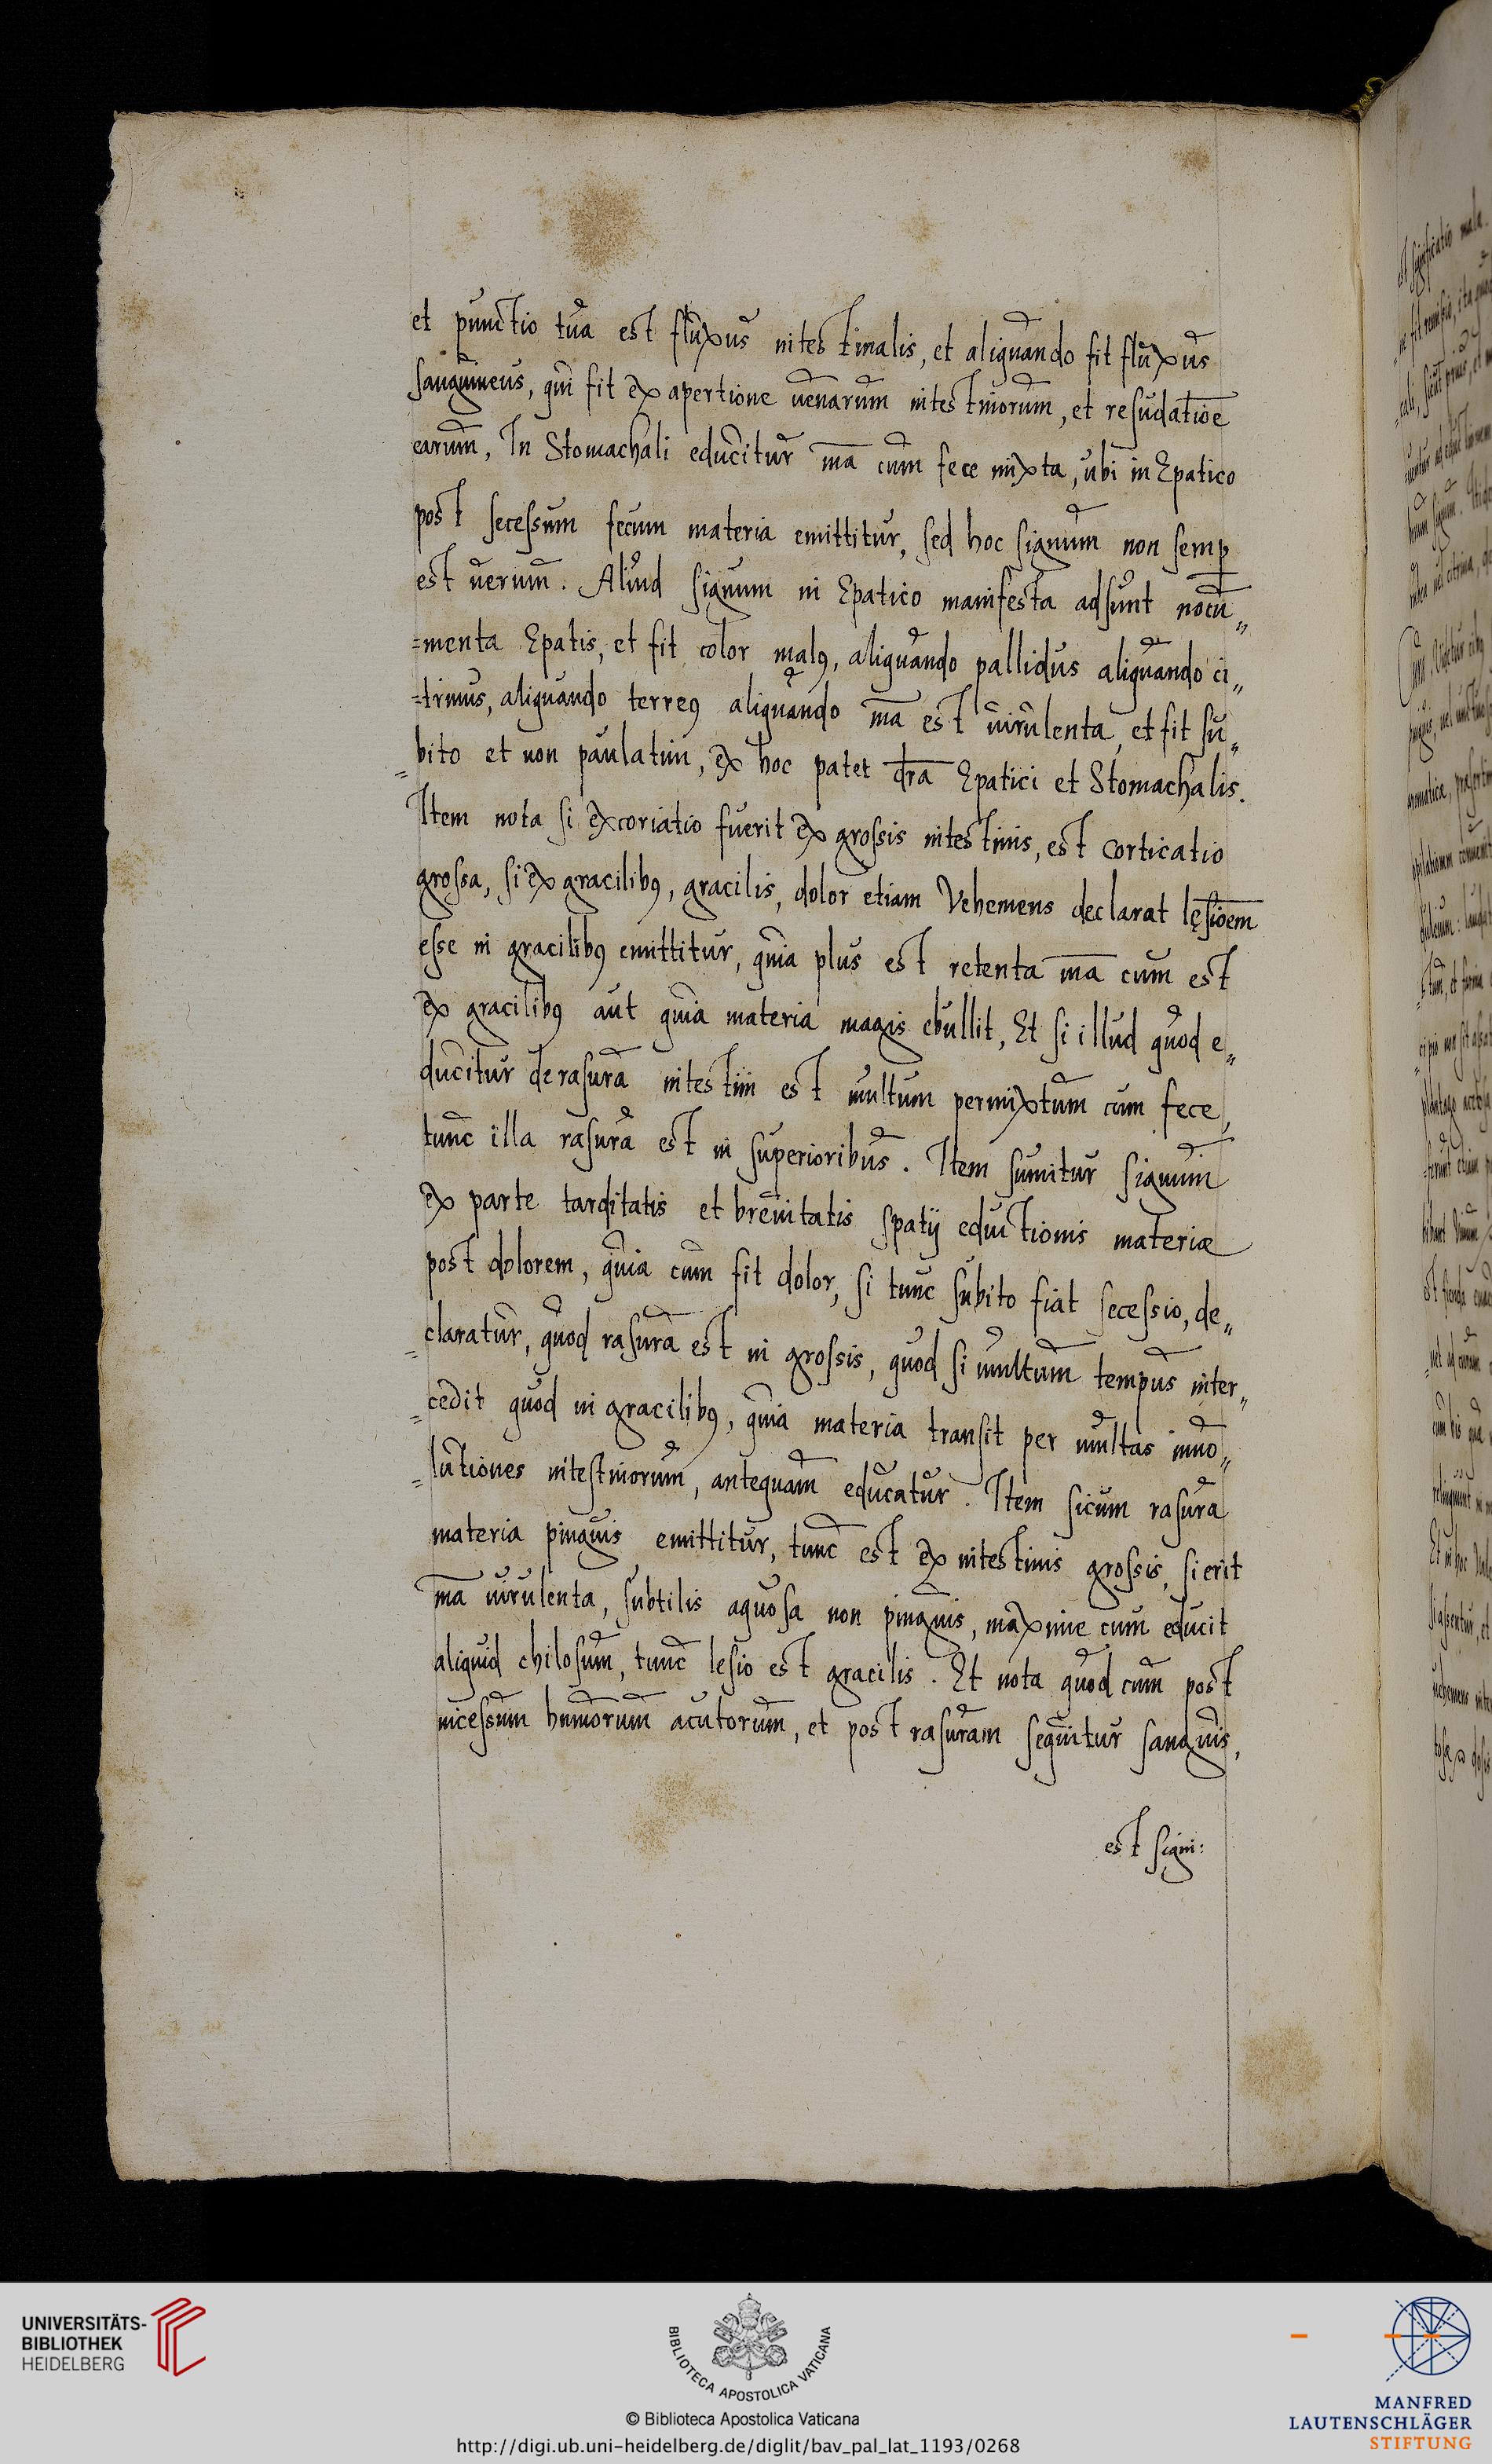 et punctio tua est fluxus intestinalis, et aliquando fit fluxus
sanguineus, qui fit ex apertione uenarum intestinorum, et resudatioē
earum, In Stomachali educitur m̄a cum fece mixta, ubi in Epatico
post secessum fecum materia emittitur, sed hoc signum non semp̱
est uerum. Aliud signum in Epatico manifesta adsunt nocu„
=menta Epatis, et fit color malꝰ, aliquando pallidus aliquando ci„
=trinus, aliquando terreꝰ aliquando m̄a est uirulenta, et fit su„
=bito et non paulatim, ex hoc patet dr̄a Epatici et Stomachalis.
Item nota si excoriatio fuerit ex grossis intestinis, est corticatio
grossa, si ex gracilibꝰ, gracilis, dolor etiam Vehemens declarat lęsioēm
esse in gracilibꝰ emittitur, quia plus est retenta m̄a cum est
ex gracilibꝰ aut quia materia magis ebullit, Et si illud quod e„
ducitur de rasura intestini est multum permixtum cum fece,
tunc illa rasura est in superioribus. Item sumitur signum
ex parte tarditatis et breuitatis spatij eductionis materiæ
post dolorem, quia cum fit dolor, si tunc subito fiat secessio, de„
=claratur, quod rasura est in grossis, quod si multum tempus inter„
=cedit quod in gracilibꝰ, quia materia transit per multas inuo„
=lutiones intestinorum, antequam educatur. Item si cum rasura
materia pinguis emittitur, tunc est ex intestinis grossis, si erit
m̄a uirulenta, subtilis aquosa non pinguis, maxime cum educit
aliquid chilosum, tunc lesio est gracilis. Et nota quod cum post
incessum humorum acutorum, et post rasuram sequitur sanguis,
est signi:
UNIVERSITÄTS-
BIBLIOTHEK
HEIDELBERG
BIBLIOTECA APOSTOLICA VATICANA
© Biblioteca Apostolica Vaticana
http://digi.ub.uni-heidelberg.de/diglit/bav_pal_lat_1193/0268
MANFRED
LAUTENSCHLÄGER
STIFTUNG